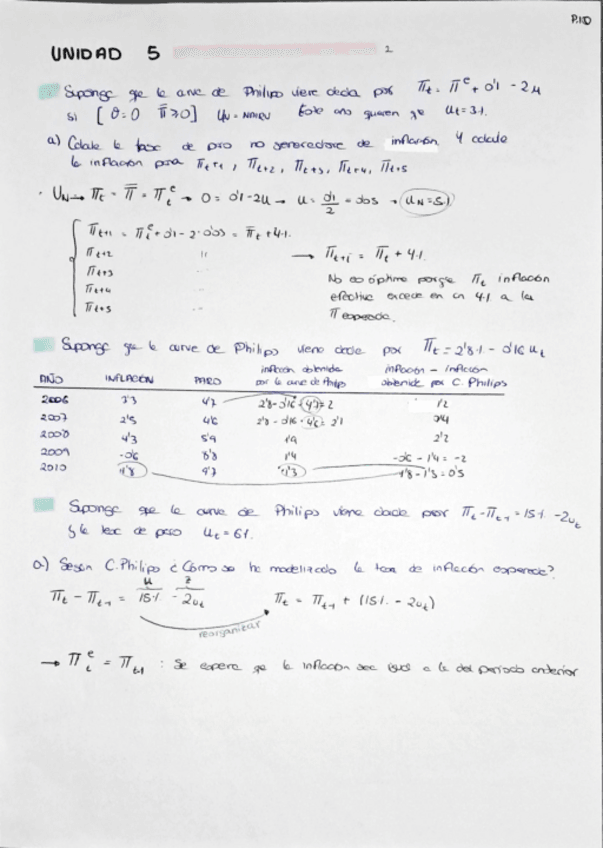 P.I.D
UNIDAD 5
2
Suponga que la curva de Philips viene dada por πt = πe + 0'1 - 2u
si [θ=0 π̄≥0] UN = NAIRU Este año quieren que ut = 3%
a) Calcule la tasa de paro no generadora de inflación y calcule
la inflación para πt+1, πt+2, πt+3, πt+4, πt+5
· UN → πt = π̄ = πte → 0 = 0'1 - 2u → u = 0'1/2 = 0'05 → UN = 5%
πt+1 = πte + 0'1 - 2·0'03 = π̄t + 4%
πt+2 "
→ πt+i = π̄t + 4%
πt+3
πt+4
πt+5
No es óptimo porque πt inflación
efectiva excede en un 4% a la
π esperada.
Suponga que la curva de Philips viene dada por πt = 2'8% - 0'16 ut
AÑO INFLACIÓN PARO inflación obtenida por la curva de Philips inflación - inflación obtenida por C. Philips
2006 3'3 4'7 2'8 - 0'16 · 4'7 = 2 1'2
2007 2'5 4'6 2'8 - 0'16 · 4'6 = 2'1 0'4
2008 4'3 5'9 1'9 2'2
2009 -0'6 8'8 1'4 -0'6 - 1'4 = -2
2010 1'8 9'7 1'3 1'8 - 1'3 = 0'5
Suponga que la curva de Philips viene dada por πt - πt-1 = 15% - 2ut
y la tasa de paro ut = 6%.
a) Según C. Philips ¿Cómo se ha modelizado la tasa de inflación esperada?
u z
πt - πt-1 = 15% - 2ut πt = πt-1 + (15% - 2ut)
reorganizar
→ πte = πt-1 : Se espera que la inflación sea igual a la del período anterior